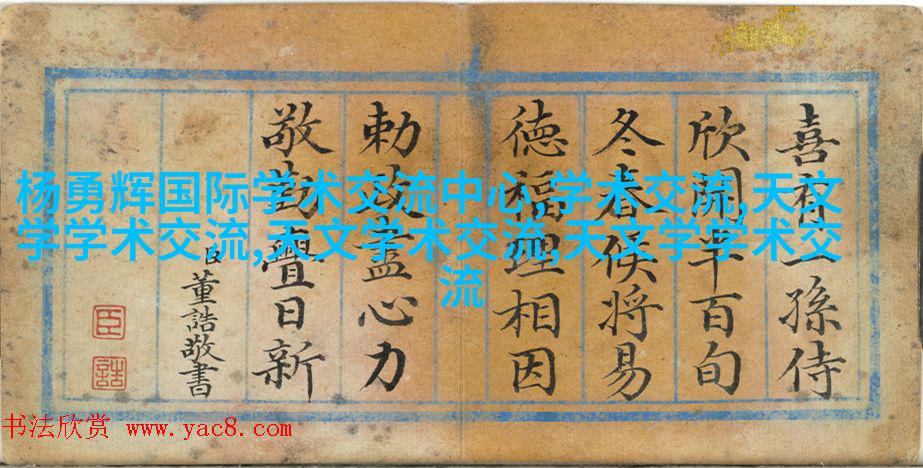 喜一孫侍
欣開半百旬
冬春候將易
德福理相因
勅政盡心力
敬勤日新
臣董誥敬書
臣
誥
杨勇辉国际学术交流中心,学术交流,天文
学学术交流,天文学术交流,天文学学术交
流
书法欣赏 www.yac8.com